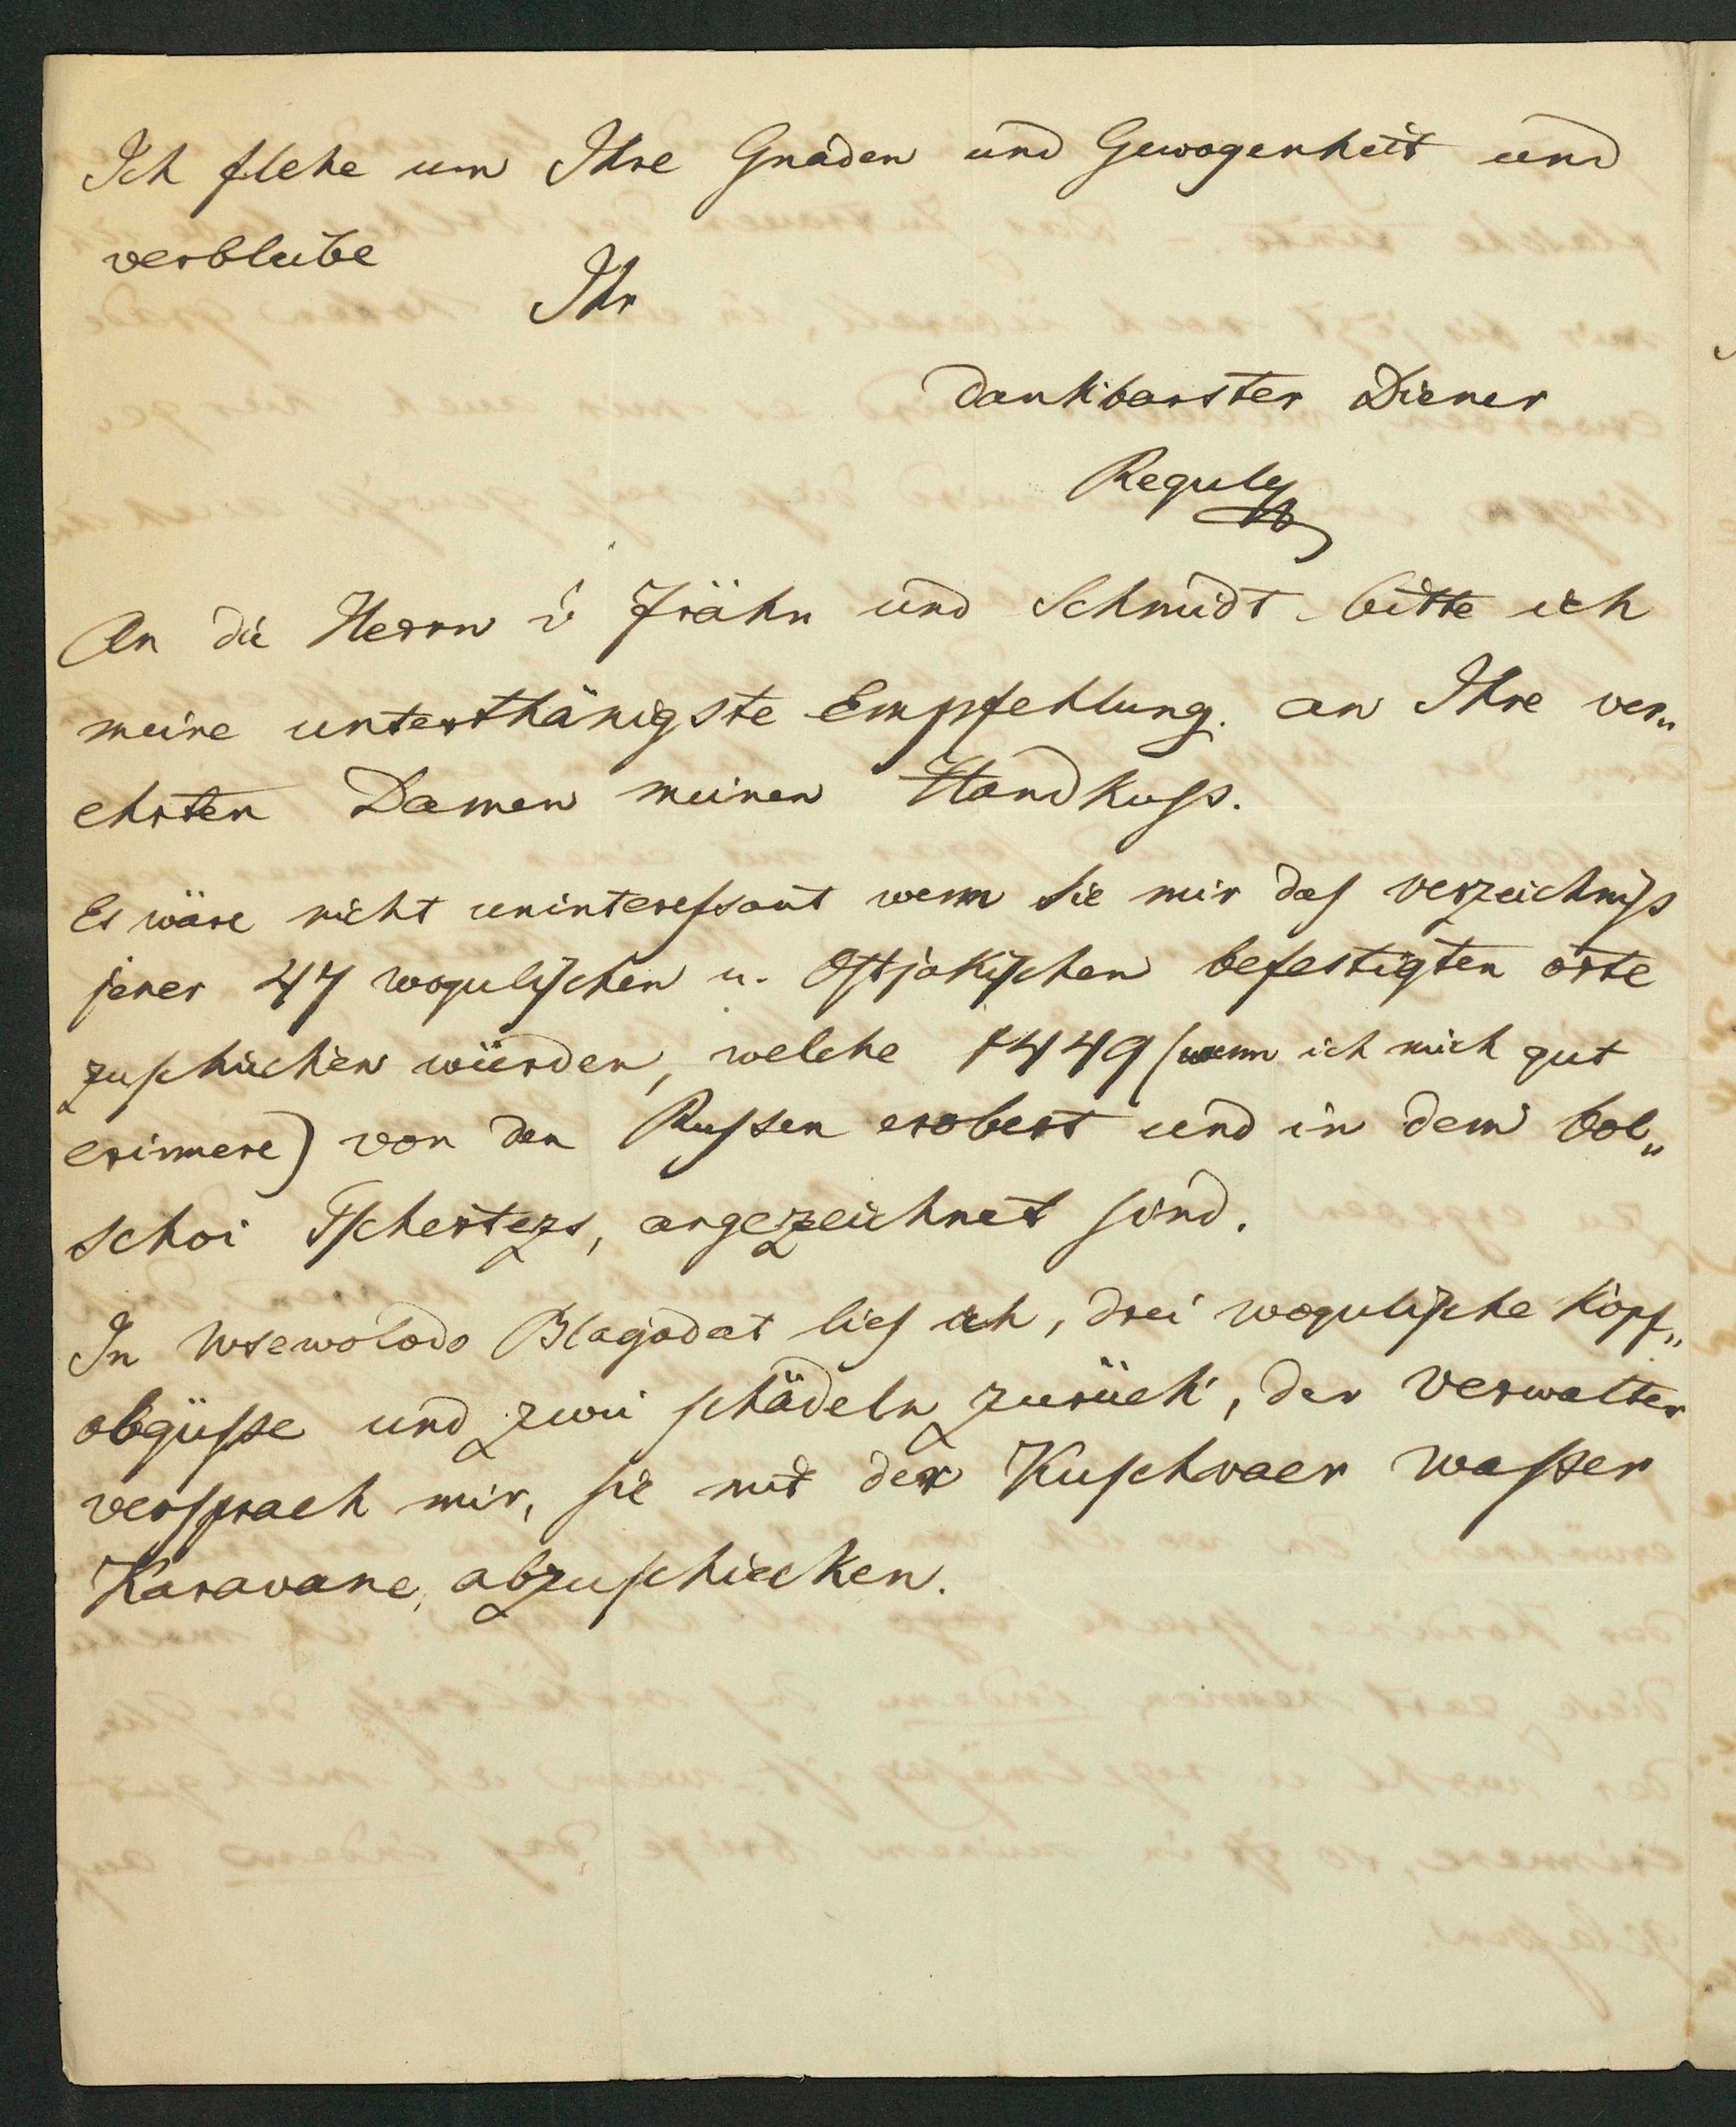 Ich flehe um Ihre Gnaden und Gewogenheit und
verbleibe
Ihr
dankbarster Diener
Reguly
An die Herrn v Frähn und Schmidt bitte ich
meine unterthänigste Empfehlung. an Ihre ver„
ehrten Damen meinen Handkuss.
Es wäre nicht uninteressant wenn Sie mir das verzeichniss
jener 47 wogulischen u. Ostjakischen befestigten örte
zuschicken würden, welche 1449 (wenn ich mich gut
erinnere) von den Russen erobert und in dem bol„
schoi Tschertezs, angezeichnet sind.
In Wsewolodo Blagodat lies ich, drei wogulische köpf„
abgüsse und zwei schädeln zurück, der Verwalter
versprach mir, sie mit der Kuschwaer wasser
Karavane, abzuschicken.